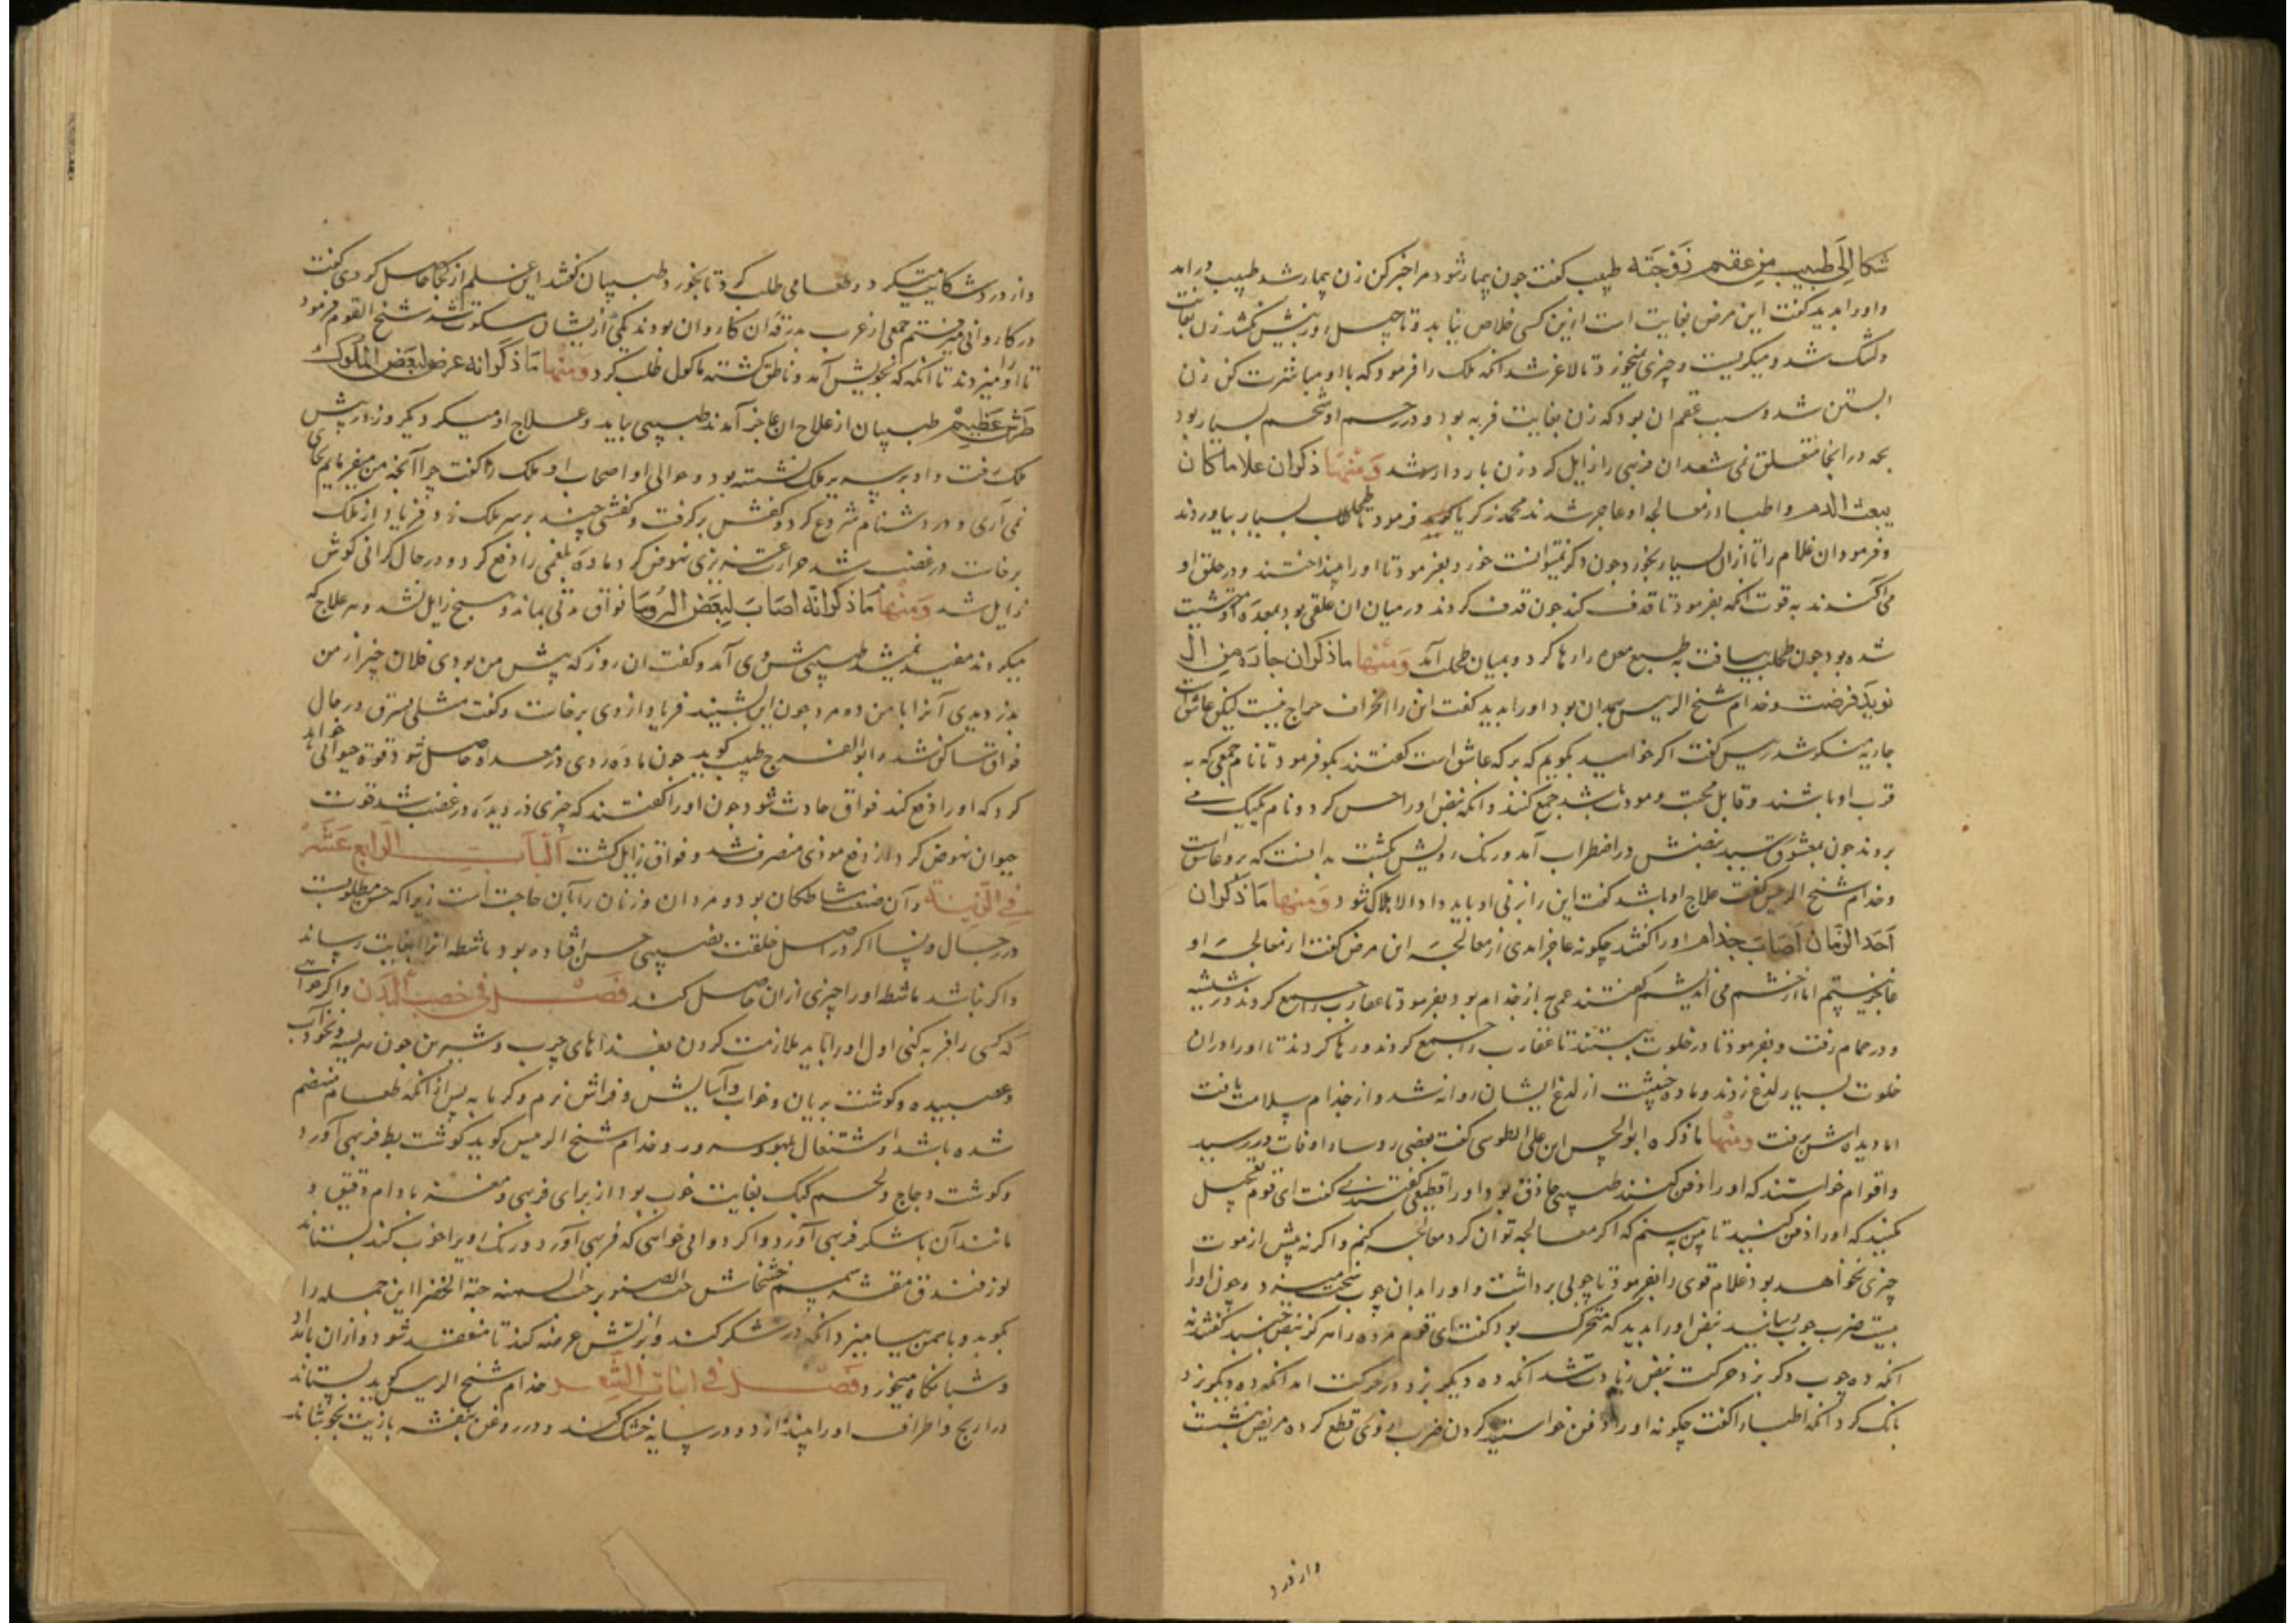 شكا الى طبيب من عقم زوجته طبیب کفت جون بیمار شود مرا خبر کن زن بیمار شد طبیب درامد
واورا بدید کفت این مرض بغایت است ازین کسی خلاص نیابد وتا چهل روز بیش نکشد زن بغایت
دلتنک شد ومیکریست وچیزی نمیخورد تا لاغر شد انکه ملک را فرمود که با او مباشرت کن زن
ابستن شد وسبب عقم ان بود که زن بغایت فربه بود ودر رحم او شحم بسیار بود
بچه در انجا متعلق نمی شد ان فربهی را زایل کرد زن باردار شد وَمِنْهَا ذکر ان غلاما کان
الدم واطبا از معالجه او عاجز شدند محمد زکریا فرمود تا طحلب بسیار بیاوردند
وفرمود ان غلام را تا ازان بسیار بخورد جون دکر نتوانست خورد بفرمود تا اورا بینداختند ودر حلق او
می آکندند به قوت انکه بفرمود تا قذف کند جون قذف کردند درمیان ان علقی بود بمعده
شده بود جون طحلب بیافت به طبع معده را رها کرد وبمیان طحلب آمد وَمِنْهَا ما ذکر ان جاریه من
مرضت وخدام شیخ الریس بهمدان بود اورا بدید کفت این را انحراف مزاج نیست لیکن عاشق است
جاریه منکر شد ریس کفت اکر خواهید بکویم که بر که عاشق است کفتند بکو فرمود تا نام جمعی که به
قرب او باشند وقابل محبت ومودت باشد جمع کنند وانکه نبض اورا حس کرد ونام یک یک می
بردند جون بمعشوق رسید نبضش در اضطراب آمد ورنک رویش بکشت بدانست که برو عاشق است
وخدام شیخ الریس کفت علاج او باشد کفت این را بزنی او باید داد والا هلاک شود وَمِنْهَا مَا ذکر ان
احد الزمان اصاب جذام اورا کفتند چکونه عاجز امدی از معالجه این مرض کفت از معالجه او
عاجز نیستم اما از چشم می اندیشم کفتند عمی به از جذام بود بفرمود تا عقارب را جمع کردند در شیشه
ودر حمام رفت وبفرمود تا در خلوت ببستند تا عقارب را جمع کردند ورها کردند تا اورا دران
خلوت بسیار لدغ زدند وماده خبیثت از لدغ ایشان روانه شد واز جذام سلامت یافت
اما دیده اش برفت ومنها ما ذکره ابو الحسن ابن علی الطوسی کفت بعضی روسا را وفات در رسید
واقوام خواستند که اورا دفن کنند طبیبی حاذق بود اورا کفت ای قوم تعجیل
مکنید که اورا دفن کنید تا من ببینم که اکر معالجه توان کرد معالجه کنم واکر نه بیش از موت
چیزی نخواهد بود غلام قوی را بفرمود تا چوبی برداشت واورا بدان چوب سخت میزد وجون اورا
بیست ضرب چوب رسانید نبض اورا بدید که متحرک بود کفت ای قوم مرده را هرکز نبض جنبد کفتند نه
انکه ده چوب دکر بزد حرکت نبض زیادت شد انکه ده دیکر بزد در حرکت امد انکه ده دیکر بزد
بانک کرد انکه اطبا را کفت چکونه اورا دفن خواستید کردن ضرب از وی قطع کرده مریض بنشست
واز درد
واز درد شکایت میکرد وطعامی طلب کرد تا بخورد طبیبان کفتند این علم از کجا حاصل کردی کفت
در کاروانی میرفتم جمعی از عرب بدرقه ان کاروان بودند یکی از یشان سکوت شد شیخ القوم فرمود
تا اورا میزدند تا انکه که بخویش آمد وناطق کشته ماکول طلب کرد وَمِنْهَا مَا ذکر انه عرض لبعض الملوک
طرش عظیم طبیبان از علاج ان عاجز آمدند طبیبی بیاید وعلاج او میکرد یکروز در پیش
ملک رفت واو بر سریر ملک نشسته بود وحوالی او اصحاب او ملک را کفت چرا آنچه من میفرمایم بجای
نمی آری ودر دشنام شروع کرد وکفش برکرفت وکفشی چند بر سر ملک زد وفریاد از ملک
برخاست در غضب شد حرارت غریزی نهوض کرد ماده بلغمی را دفع کرد ودر حال کرانی کوش
زایل شد وَمِنْهَا مَا ذکر انه اصاب لبعض الروسا فواق مدتی بماند وهیچ زایل نشد وهر علاج که
میکردند مفید نمیشد طبیبی پیش وی آمد وکفت ان روز که پیش من بودی فلان چیز از من
بدزدیدی آنرا با من ده مرد جون این بشنید فریاد از وی برخاست وکفت مثلی یسرق در حال
فواق ساکن شد وابو الفرج طبیب کوید جون ماده ردی در معده حاصل شود قوه حیوانی خواهد
کرد که اورا دفع کند فواق حادث شود جون اورا کفتند که چیزی دزدیده در غضب شد قوت
حیوان نهوض کرد واز دفع موذی منصرف شد وفواق زایل کشت الباب الرابع عشر
فی الزینة وآن صنعت مشاطکان بود ومردان وزنان را بآن حاجت است زیرا که حسن مطلوبست
در رجال ونسا اکر در اصل خلقت نصیبی حسن افتاده بود ماشطه انرا بغایت رساند
واکر نباشد ماشطه اورا چیزی ازان حاصل کند فصل فی خصب البدن واکر خواهی
که کسی را فربه کنی اول اورا باید ملازمت کردن بغذاهای چرب وشیرین جون هریسه ونخوداب
وعصیده وکوشت بریان وخواب وآسایش وفراش نرم وکرمابه پس ازانکه طعام منهضم
شده باشد واشتغال بلهو وسرور وخدام شیخ الریس کوید کوشت بط فربهی آورد
وکوشت دجاج ولحم کبک بغایت خوب بود از برای فربهی ومغز بادام دقیق و
مانند آن با شکر فربهی آورد واکر دوایی خواهی که فربهی آورد ورنک اورا خوب کند بستاند
لوز فندق مقشر سمسم خشخاش حب الصنوبر حب السمنه حبة الخضرا این جمله را
بکوبد وباهم بیامیزد انکه در شکر کند وبر آتش عرضه کند تا منعقد شود وازان بامداد
وشبانکاه میخورد فصل فی انبات الشعر خدام شیخ الریس کوید بستاند
دراریح واطراف اورا بیندازد ودر سایه خشک کند ودر روغن بنفشه با زیت بجوشاند